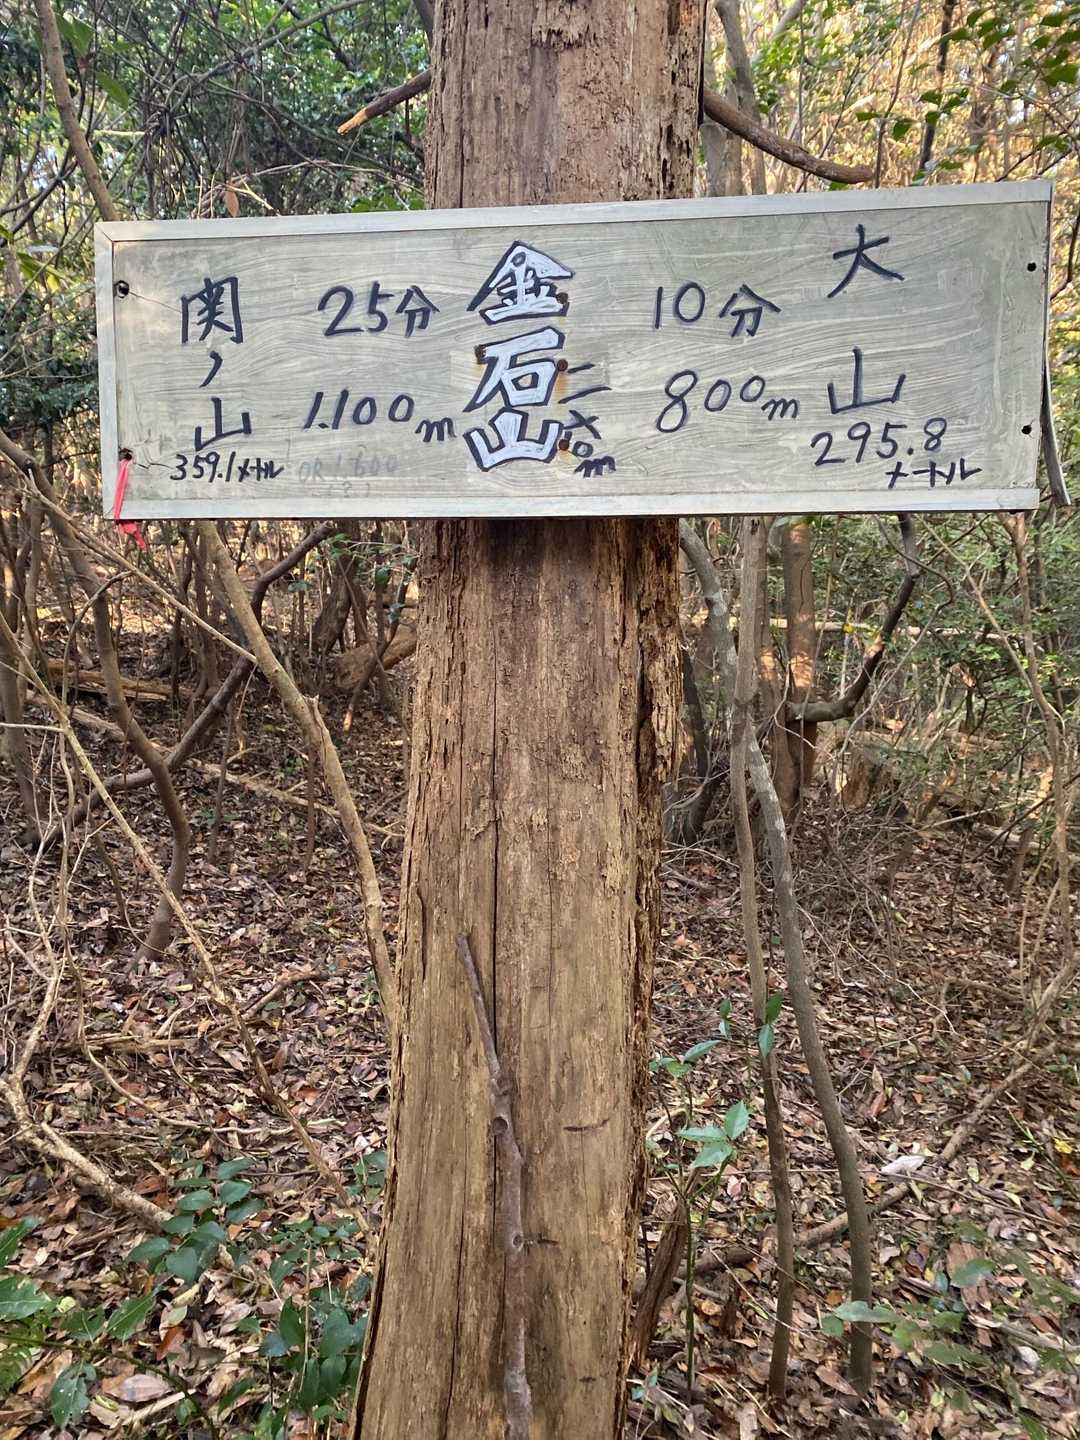 関ノ山
359.1メートル
25分
1.100m
OR1.600
金石山
二六〇m
10分
800m
大山
295.8
メートル